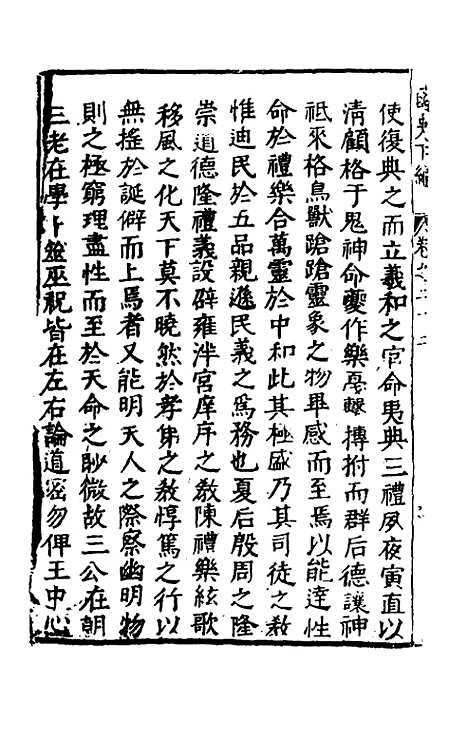 函史下編
卷之二十二
使復典之而立羲和之官命夷典三禮夙夜寅直以
清顧格于鬼神命夔作樂戛擊搏拊而群后德讓神
祗來格鳥獸蹌蹌靈象之物畢感而至焉以能達性
命於禮樂合萬靈於中和此其極盛乃其司徒之敎
惟迪民於五品親遜民義之爲務也夏后殷周之隆
崇道德隆禮義設辟雍泮宮庠序之敎陳禮樂絃歌
移風之化天下莫不曉然於孝弟之敎惇篤之行以
無搖於誕僻而上焉者又能明天人之際察幽明物
則之極窮理盡性而至於天命之眇微故三公在朝
三老在學卜筮巫祝皆在左右論道密勿俾王中心